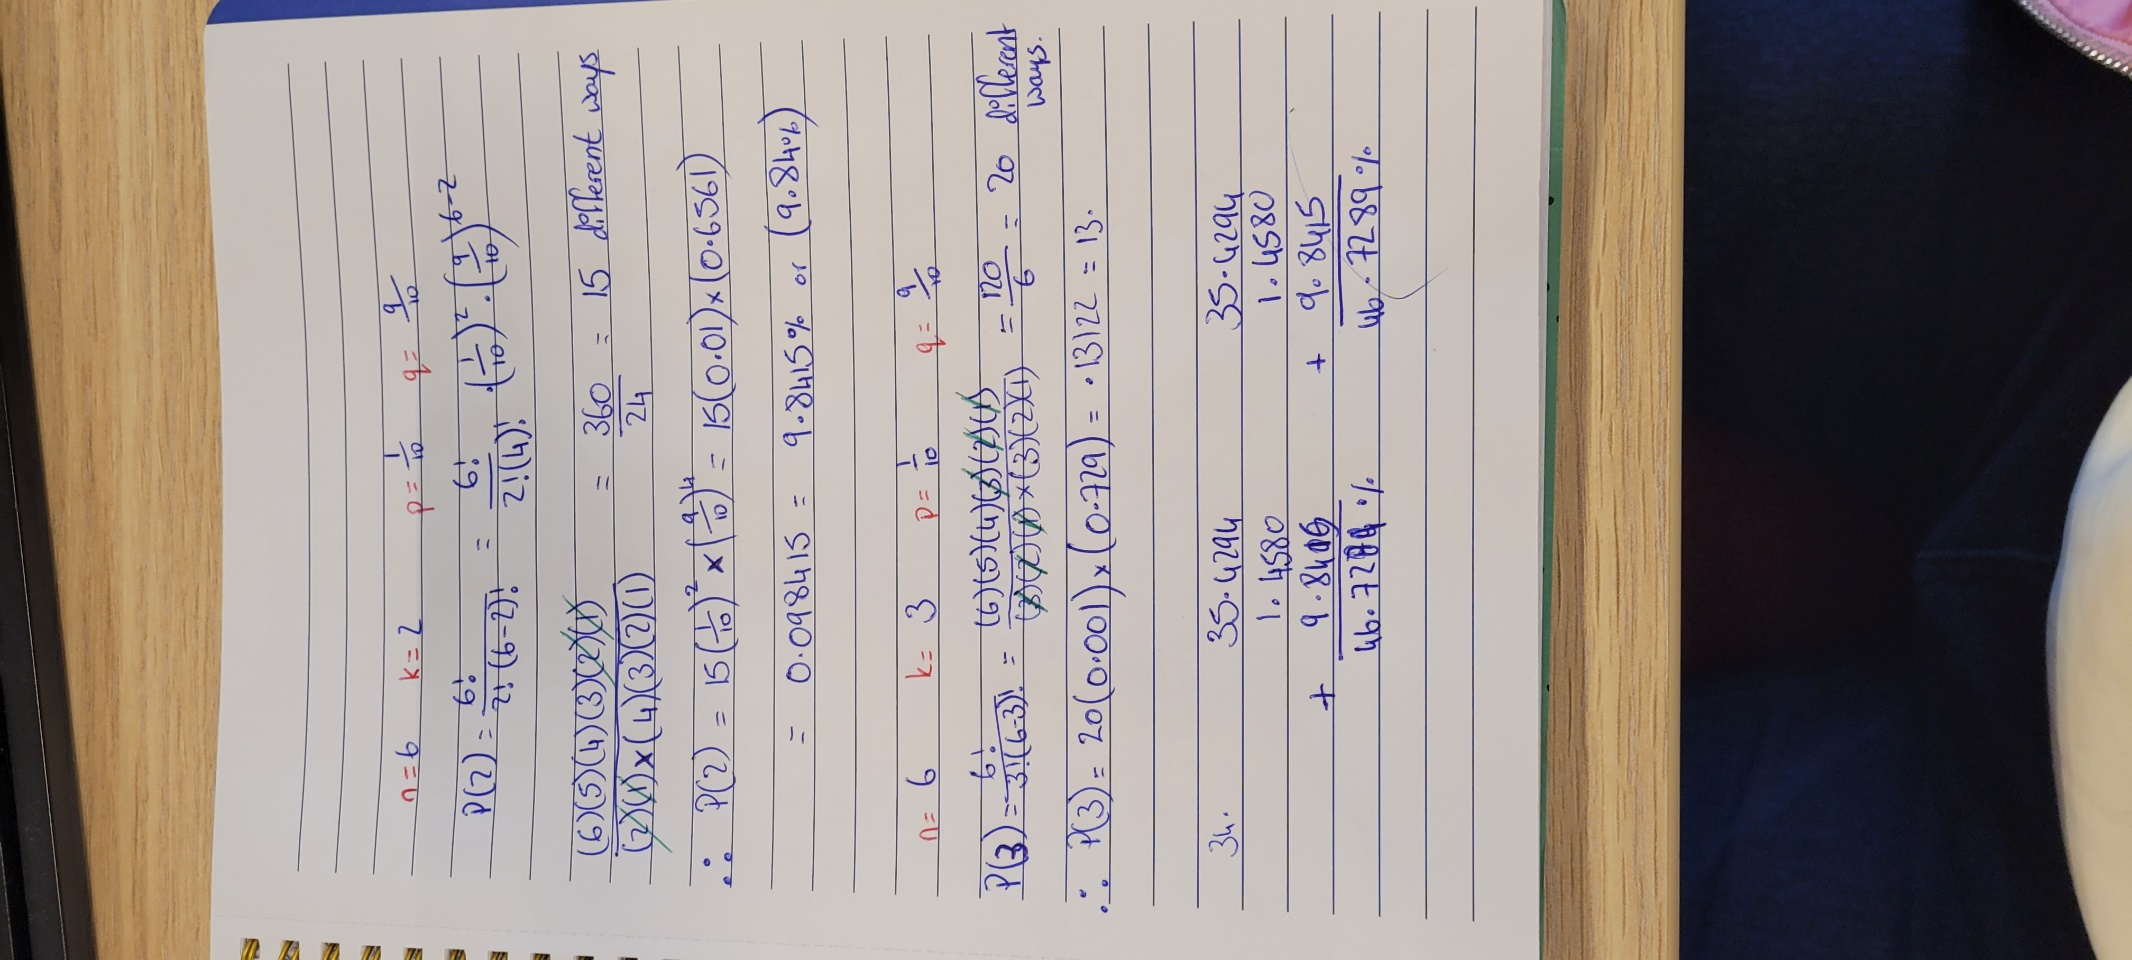 n=6 k=2 p=1/10 q=9/10
P(2) = 6!/2!(6-2)! = 6!/2!(4)! · (1/10)² · (9/10)⁶⁻²
(6)(5)(4)(3)(2)(1)/(2)(1)×(4)(3)(2)(1) = 360/24 = 15 different ways
∴ P(2) = 15(1/10)² × (9/10)⁴ = 15(0.01)×(0.6561)
= 0.098415 = 9.8415% or (9.84%)
n= 6 k= 3 p= 1/10 q= 9/10
P(3) = 6!/3!(6-3)! = (6)(5)(4)(3)(2)(1)/(3)(2)(1)×(3)(2)(1) = 120/6 = 20 different
ways.
∴ P(3) = 20(0.001)×(0.729) = .13122 = 13.
34. 35.4294 35.4294
1.4580 1.4580
+ + 9.8415
46.7289%